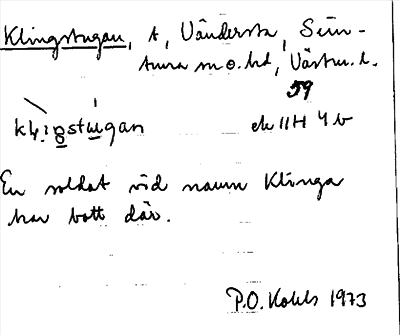 Klingstugan, t, Vändersta, Sim-
tuna sn o. hd, Västm. l.
59
klıŋstugan ek 11H 4b
En soldat vid namn Klinga
har bott där.
P.O. Kohls 1973